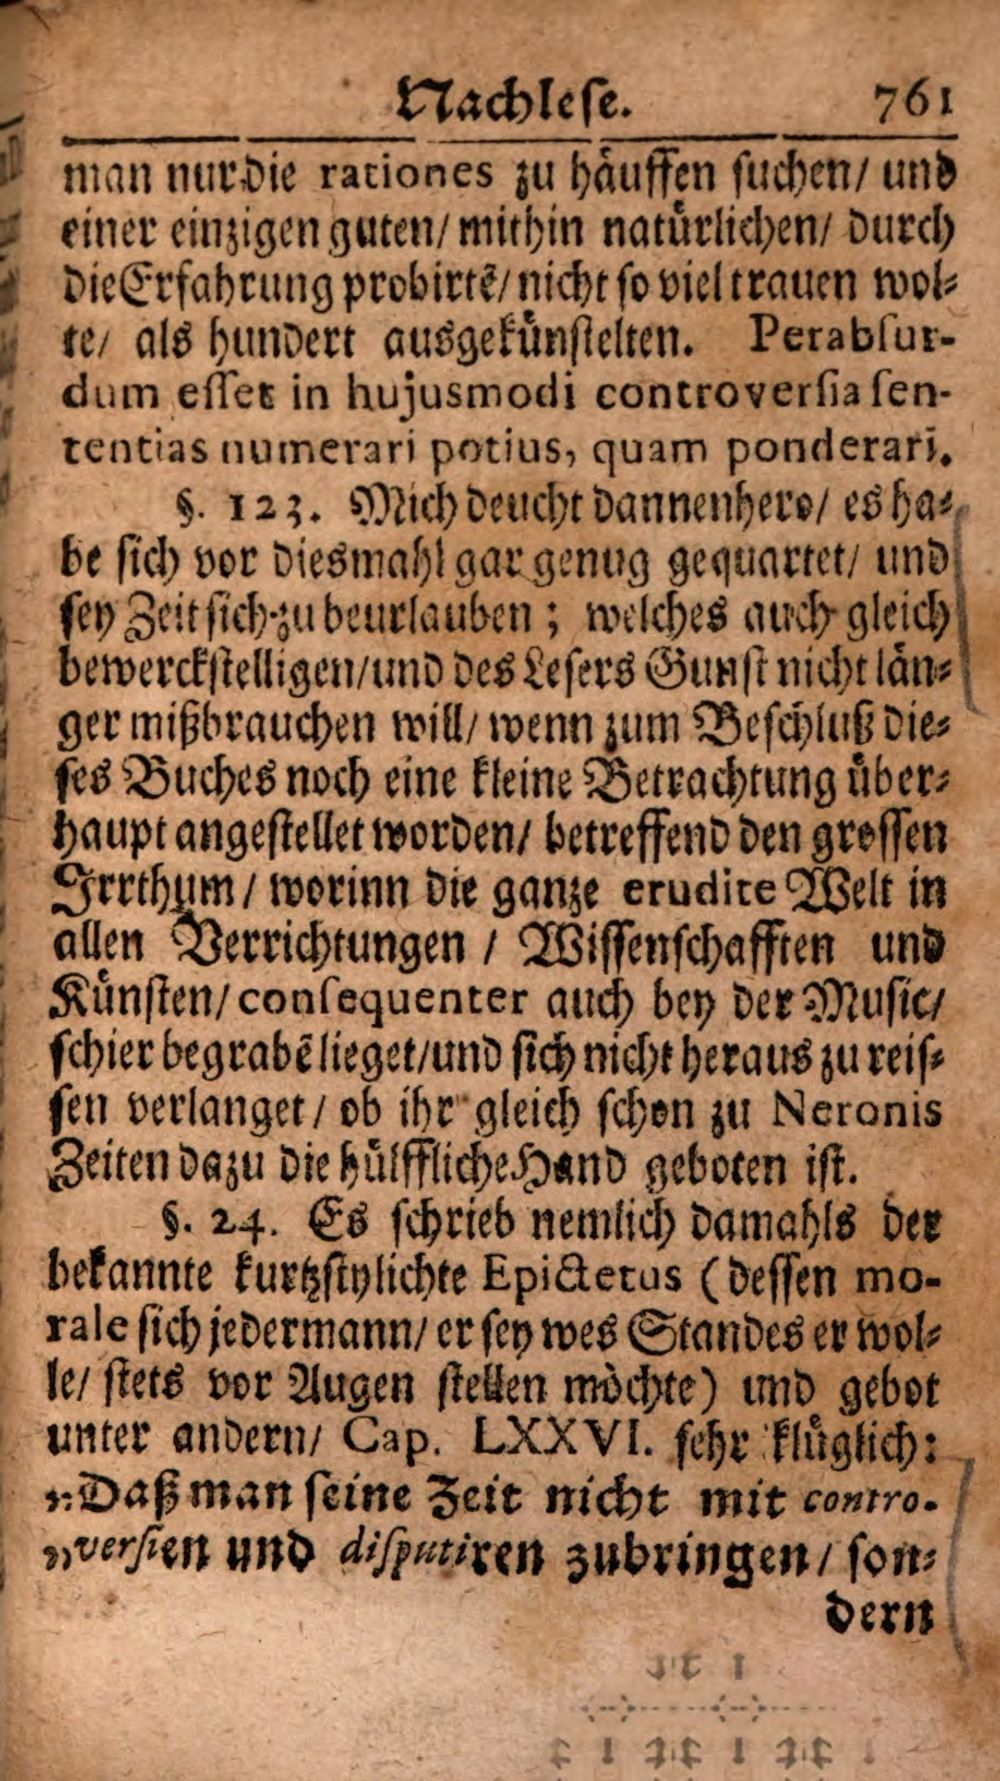 Nachlese. 761
man nur die rationes zu häuffen suchen/ und
einer einzigen guten/ mithin natürlichen/ durch
die Erfahrung probirtē/ nicht so viel trauen wol⸗
te/ als hundert ausgekünstelten. Perabsur-
dum esset in hujusmodi controversia sen-
tentias numerari potius, quam ponderari.
§. 123. Mich deucht dannenhero/ es ha⸗
be sich vor diesmahl gar genug gequartet/ und
sey Zeit sich zu beurlauben; welches auch gleich
bewerckstelligen/ und des Lesers Gunst nicht län⸗
ger mißbrauchen will/ wenn zum Beschluß die⸗
ses Buches noch eine kleine Betrachtung über⸗
haupt angestellet worden/ betreffend den grossen
Irrthum/ worinn die ganze erudite Welt in
allen Verrichtungen/ Wissenschafften und
Künsten/ consequenter auch bey der Music/
schier begrabē lieget/ und sich nicht heraus zu reis⸗
sen verlanget/ ob ihr gleich schon zu Neronis
Zeiten dazu die hülffliche Hand geboten ist.
§. 24. Es schrieb nemlich damahls der
bekannte kurtzstylichte Epictetus (dessen mo-
rale sich jedermann/ er sey wes Standes er wol⸗
le/ stets vor Augen stellen möchte) und gebot
unter andern/ Cap. LXXVI. sehr klüglich:
„Daß man seine Zeit nicht mit contro-
„versien und disputiren zubringen/ son⸗
dern